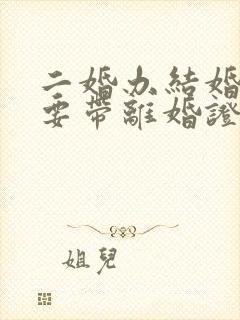 二婚办結婚
要帶離婚證
姐兒